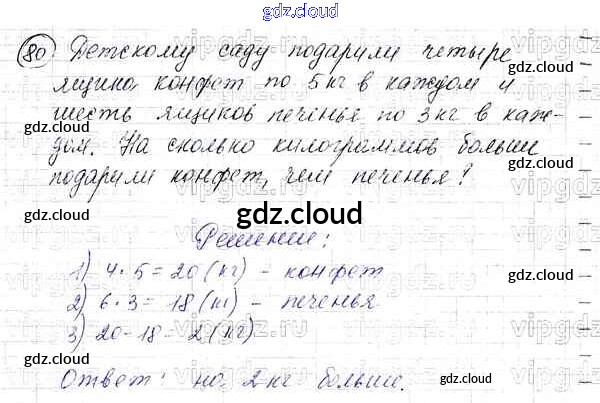 gdz.cloud
80 Детскому саду подарили четыре
ящика конфет по 5 кг в каждом и
шесть ящиков печенья по 3 кг в каж-
дом. На сколько килограммов больше
подарили конфет, чем печенья?
gdz.cloud
Решение:
1) 4 · 5 = 20 (кг) - конфет
2) 6 · 3 = 18 (кг) - печенья
3) 20 - 18 = 2 (кг)
Ответ: на 2 кг больше.
gdz.cloud